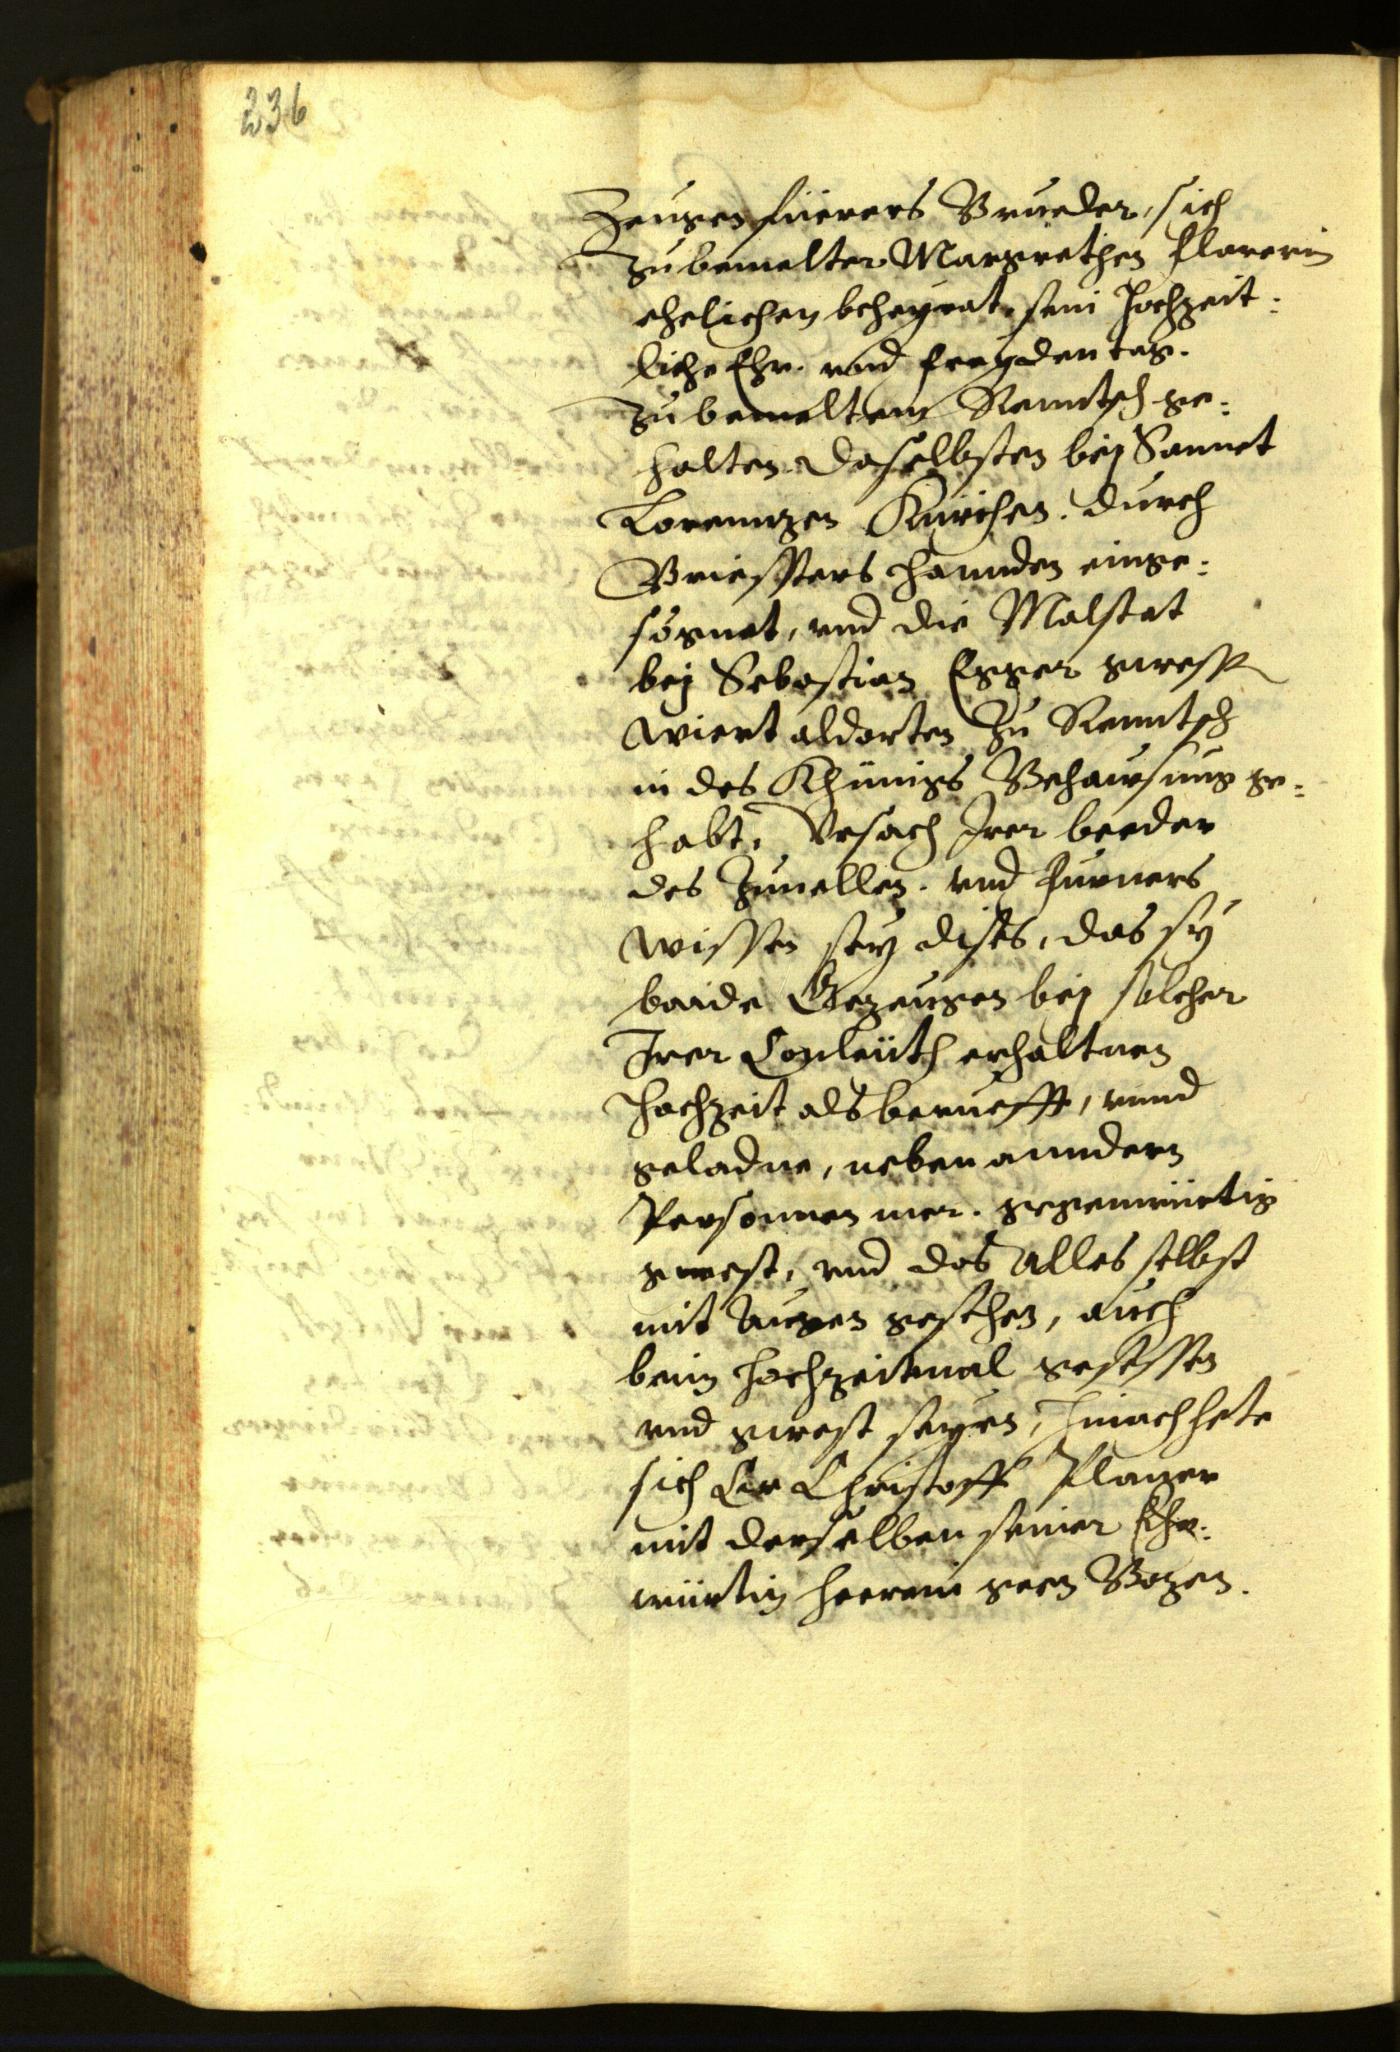 236
Zeugen füerers Brueder, sich
zu bemelter Margrethen Florerin
ehelichen beheyrat, sein Hochzeit:
liche Ehr. vnd freyden tag.
zu bemeltem Renntsch ge:
halten. Daselbsten bej Sannct
Lorenntzen Kürchen. durch
Briessters hannden einge:
sögnet, vnd die Malstat
bej Sebastian Egger gwesst
wiert aldorten zu Renntsch
in des Khünigs Behausung ge:
habt, Vrsach Irer beeder
des Zunellen. vnd Furners
wissen sey dises, das sy
baide Gezeugen bej solcher
Irer Conleüth erhaltnen
Hochzeit als beruefft, vnnd
geladne, neben anndern
Personnen mer. gegenwürtig
gwest, vnd das alles selbst
mit Augen gesehen, auch
beim Hochzeitmal gesessen
vnd gwest seyen, hinach hete
sich Er Christoff Planer
mit derselben seiner Ehe:
würtin heerein geen Bozen.